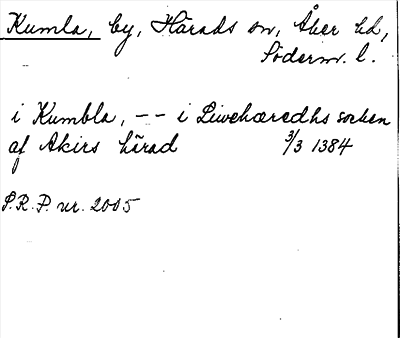 Kumla, by, Härads sn, Åker hd,
Söderm. l.
i Kumbla, -- i Liwehæredhs socken
af Akirs härad 3/3 1384
S.R.P. nr. 2005